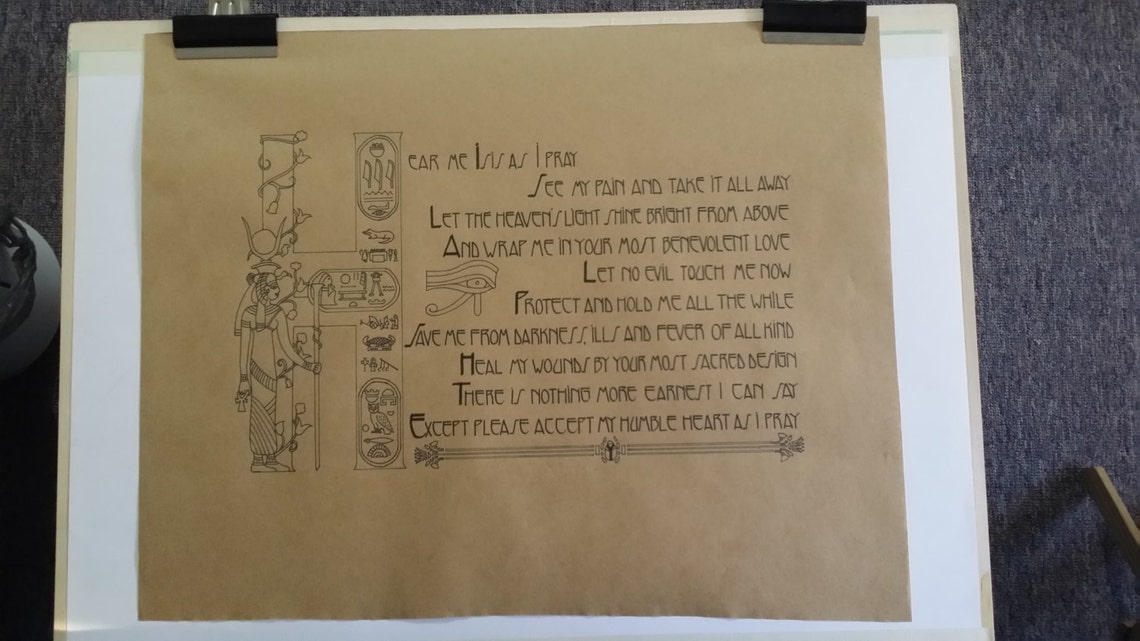 Hear me Isis as I pray
See my pain and take it all away
Let the heaven's light shine bright from above
And wrap me in your most benevolent love
Let no evil touch me now
Protect and hold me all the while
Save me from darkness, ills and fever of all kind
Heal my wounds by your most sacred design
There is nothing more earnest I can say
Except please accept my humble heart as I pray